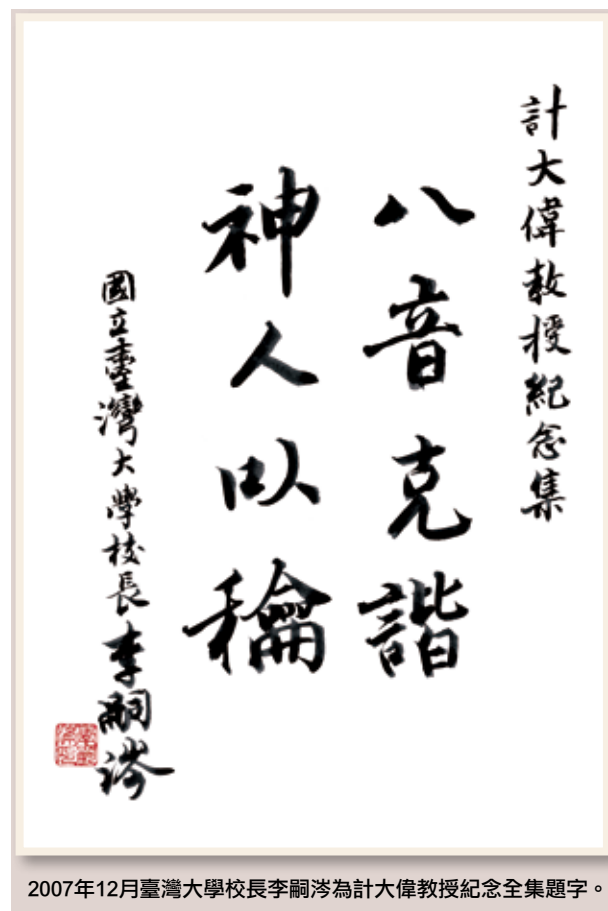 計大偉教授紀念集
八音克諧
神人以龢
國立臺灣大學校長李嗣涔
2007年12月臺灣大學校長李嗣涔為計大偉教授紀念全集題字。